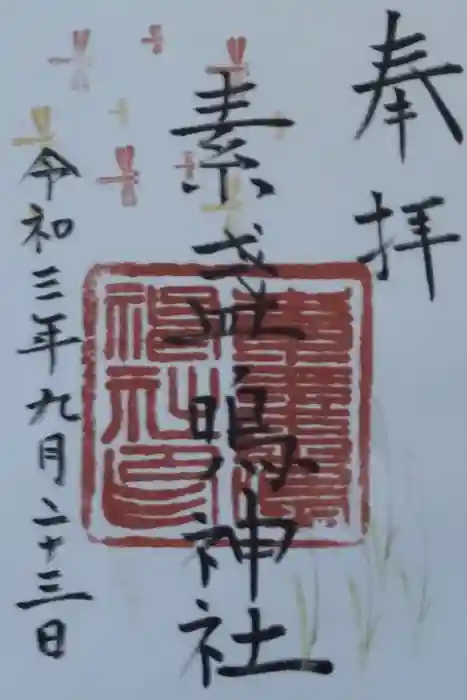 奉拝
素盞嗚神社
令和三年九月二十三日